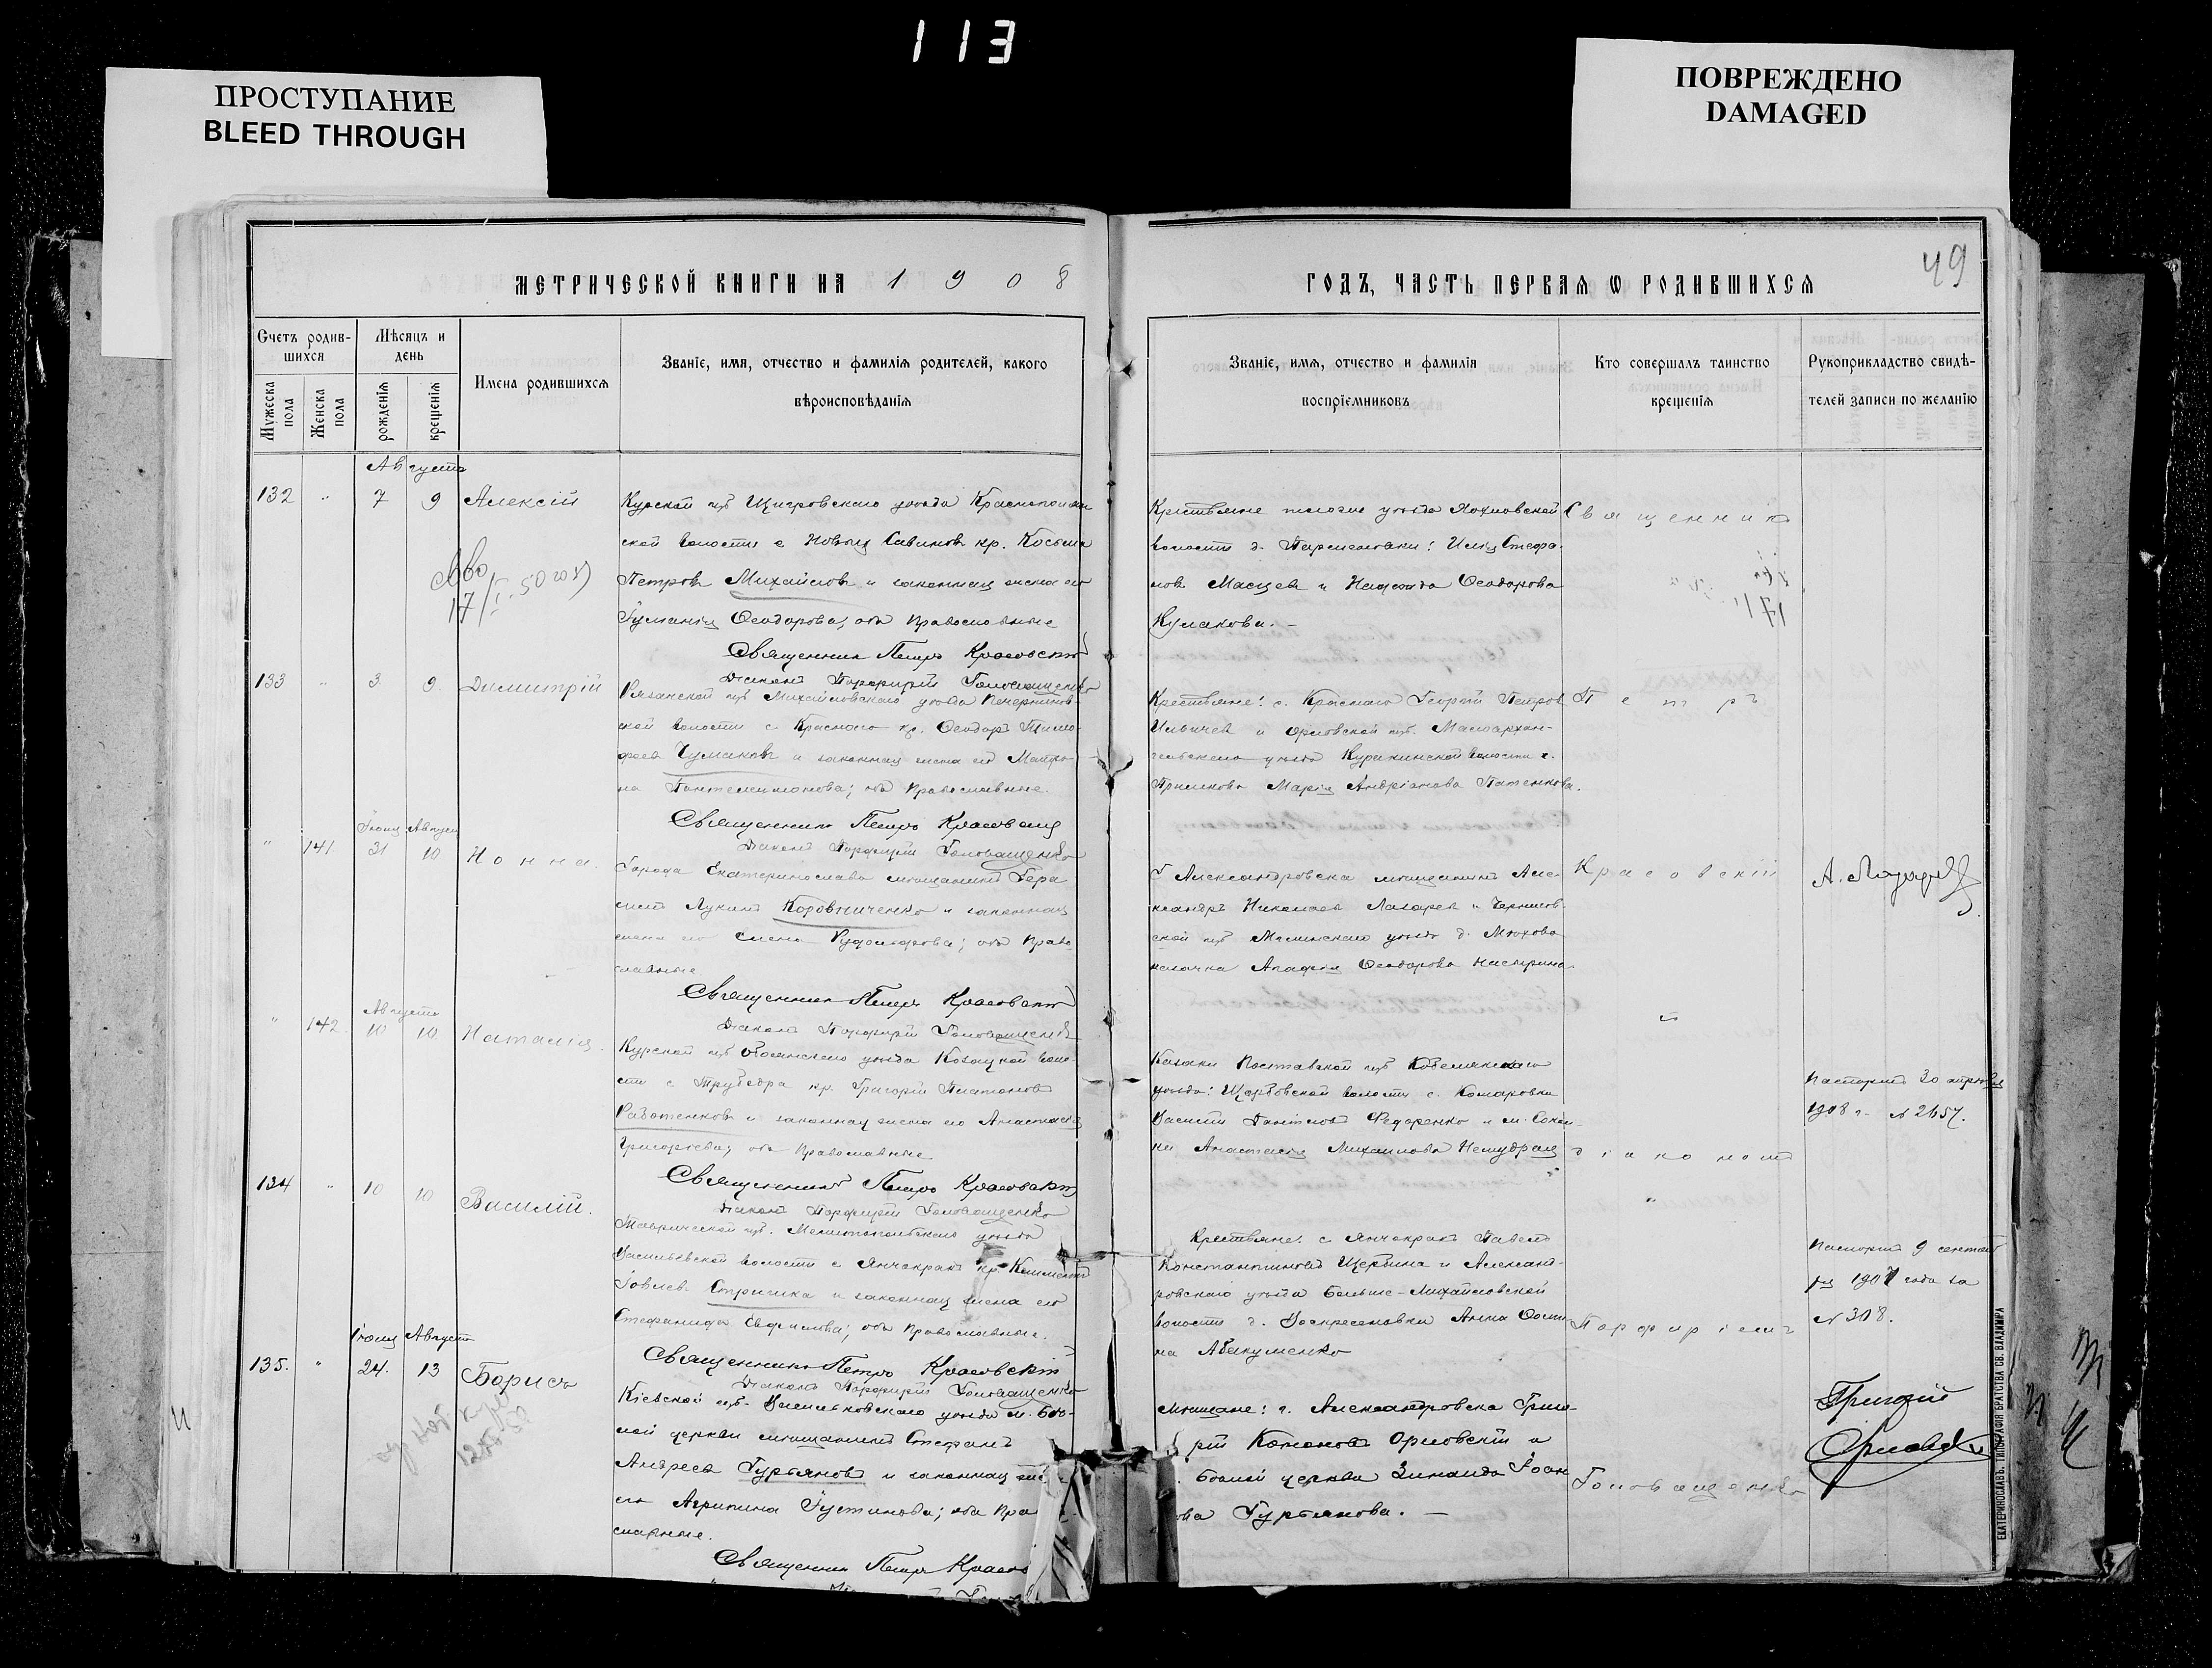 113
ПРОСТУПАНИЕ
BLEED THROUGH
ПОВРЕЖДЕНО
DAMAGED
МЕТРИЧЕСКОЙ КНИГИ НА 1908
ГОДЪ, ЧАСТЬ ПЕРВАЯ Ѡ РОДИВШИХСЯ
49
Счетъ родив-
шихся
Мужеска пола
Женска пола
Мѣсяцъ и
день
рожденія
крещенія
Имена родившихся
Званіе, имя, отчество и фамилія родителей, какого
вѣроисповѣданія
Званіе, имя, отчество и фамилія
воспріемниковъ
Кто совершалъ таинство
крещенія
Рукоприкладство свидѣ-
телей записи по желанію
Августъ
132 " 7 9 Алексій
Курской губ Щигровскаго уѣзда
ской волости с Савинов кр. Косьма
Петровъ Михайловъ и законная жена его
Ѳеодорова, оба православные
Священникъ Петръ Красовскій
Діаконъ Порфирій Головащенко
Крестьяне того же уѣзда
волости д. : Илія Стефа-
новъ и Надежда Ѳеодорова
Кулакова. -
Священникъ
133 " 3 9. Димитрій
Рязанской губ Михайловскаго уѣзда Печерников-
ской волости с Краснаго кр. Ѳеодоръ Тимо-
феевъ Чумаковъ и законная жена его Матро-
на Пантелеимонова; оба православные.
Священникъ Петръ Красовскій
Діаконъ Порфирій Головащенко
Крестьяне: с. Краснаго Георгій Петровъ
Ильичев и Орловской губ. Малоархан-
гельскаго уѣзда Куракинской волости с.
Марія Андріанова Патенкова.
Петръ
Іюль Августъ
" 141 31 10 Нонна.
Города Екатеринослава мѣщанинъ Гера-
симъ Лукинъ Коровниченко и законная
жена его Елена ; оба право-
славные
Священникъ Петръ Красовскій
Діаконъ Порфирій Головащенко
Г Александровска мѣщанинъ Але-
ксандръ Николаевъ Лазаревъ и Чернигов-
ской губ Мглинскаго уѣзда д.
Агафія Ѳеодорова
Красовскій
А. Лазаревъ
Августъ
" 142 10 10 Наталія.
Курской губ Обоянскаго уѣзда Козацкой воло-
сти с кр. Григорій Платоновъ
Работенковъ и законная жена его Анастасія
Григорьева; оба православные
Священникъ Петръ Красовскій
Діаконъ Порфирій Головащенко
Казаки Полтавской губ Кобелякскаго
уѣзда: волости с. Комаровки
Василій Даніиловъ Федоренко и м. Сокол-
ки Анастасія Михаилова Немудрая
съ
діакономъ
Паспортъ 30 апрѣля
1908 г. № 2657.
134 " 10 10 Василій.
Таврической губ. Мелитопольскаго уѣзда
Васильевской волости с Янчекракъ кр. Климентъ
Іовлевъ Стрижка и законная жена его
Стефанида ; оба православные.
Священникъ Петръ Красовскій
Діаконъ Порфирій Головащенко
Крестьяне: с Янчекракъ Павелъ
Константиновъ Щербина и Александ-
ровскаго уѣзда Больше-Михайловской
волости д. Воскресеновки Анна
на Абакуменко
Порфиріемъ
Паспортъ 9 сентяб-
ря 1907 года за
№ 308.
Іюль Августъ
135. " 24. 13 Борисъ
Кіевской губ. Васильковскаго уѣзда м. Бѣ-
лой церкви мѣщанинъ Стефанъ
Андреевъ Гурьяновъ и законная жена
его Агрипина Іустинова; оба пра
славные.
Священникъ Петръ Красо
Мѣщане: г. Александровска Григо-
рій Кононовъ Орловскій и
Бѣлой церкви Зинаида Іоан
ова Гурьянова. —
Головащенко
Григорій
Орловскій
ЕКАТЕРИНОСЛАВЪ. ТИПОГРАФІЯ БРАТСТВА СВ. ВЛАДИМІРА